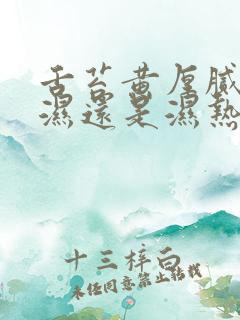 舌苔黄厚腻
濕還是濕熱
十三梓白
未经同意禁止转载